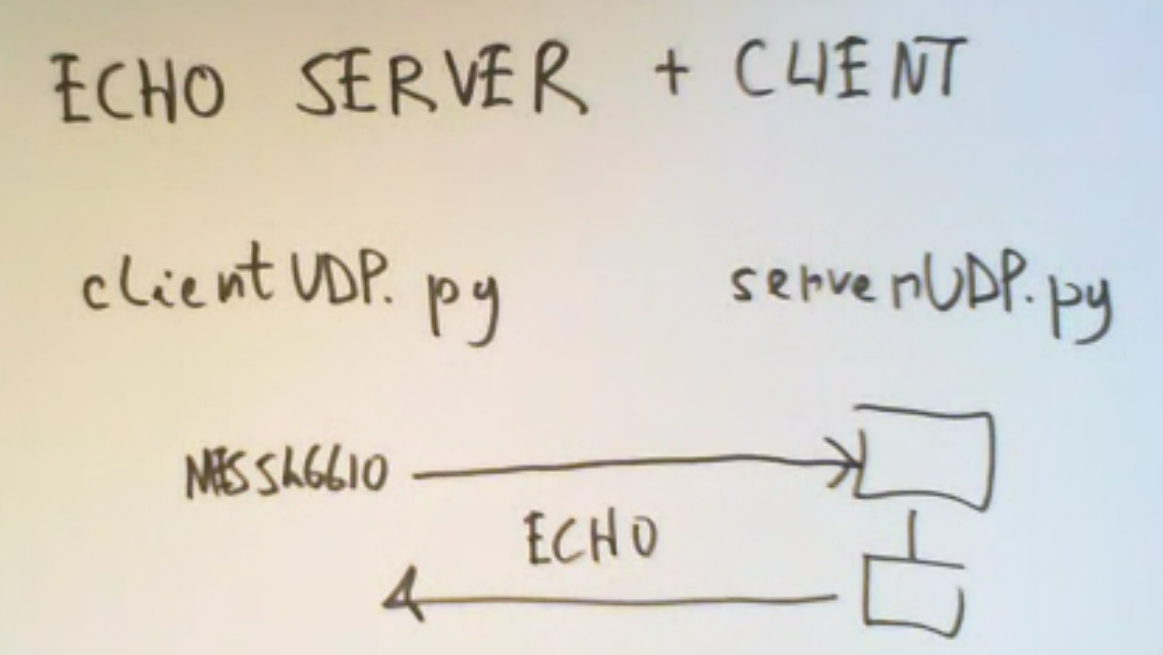 ECHO SERVER + CLIENT
clientUDP.py
serverUDP.py
MESSAGGIO
ECHO